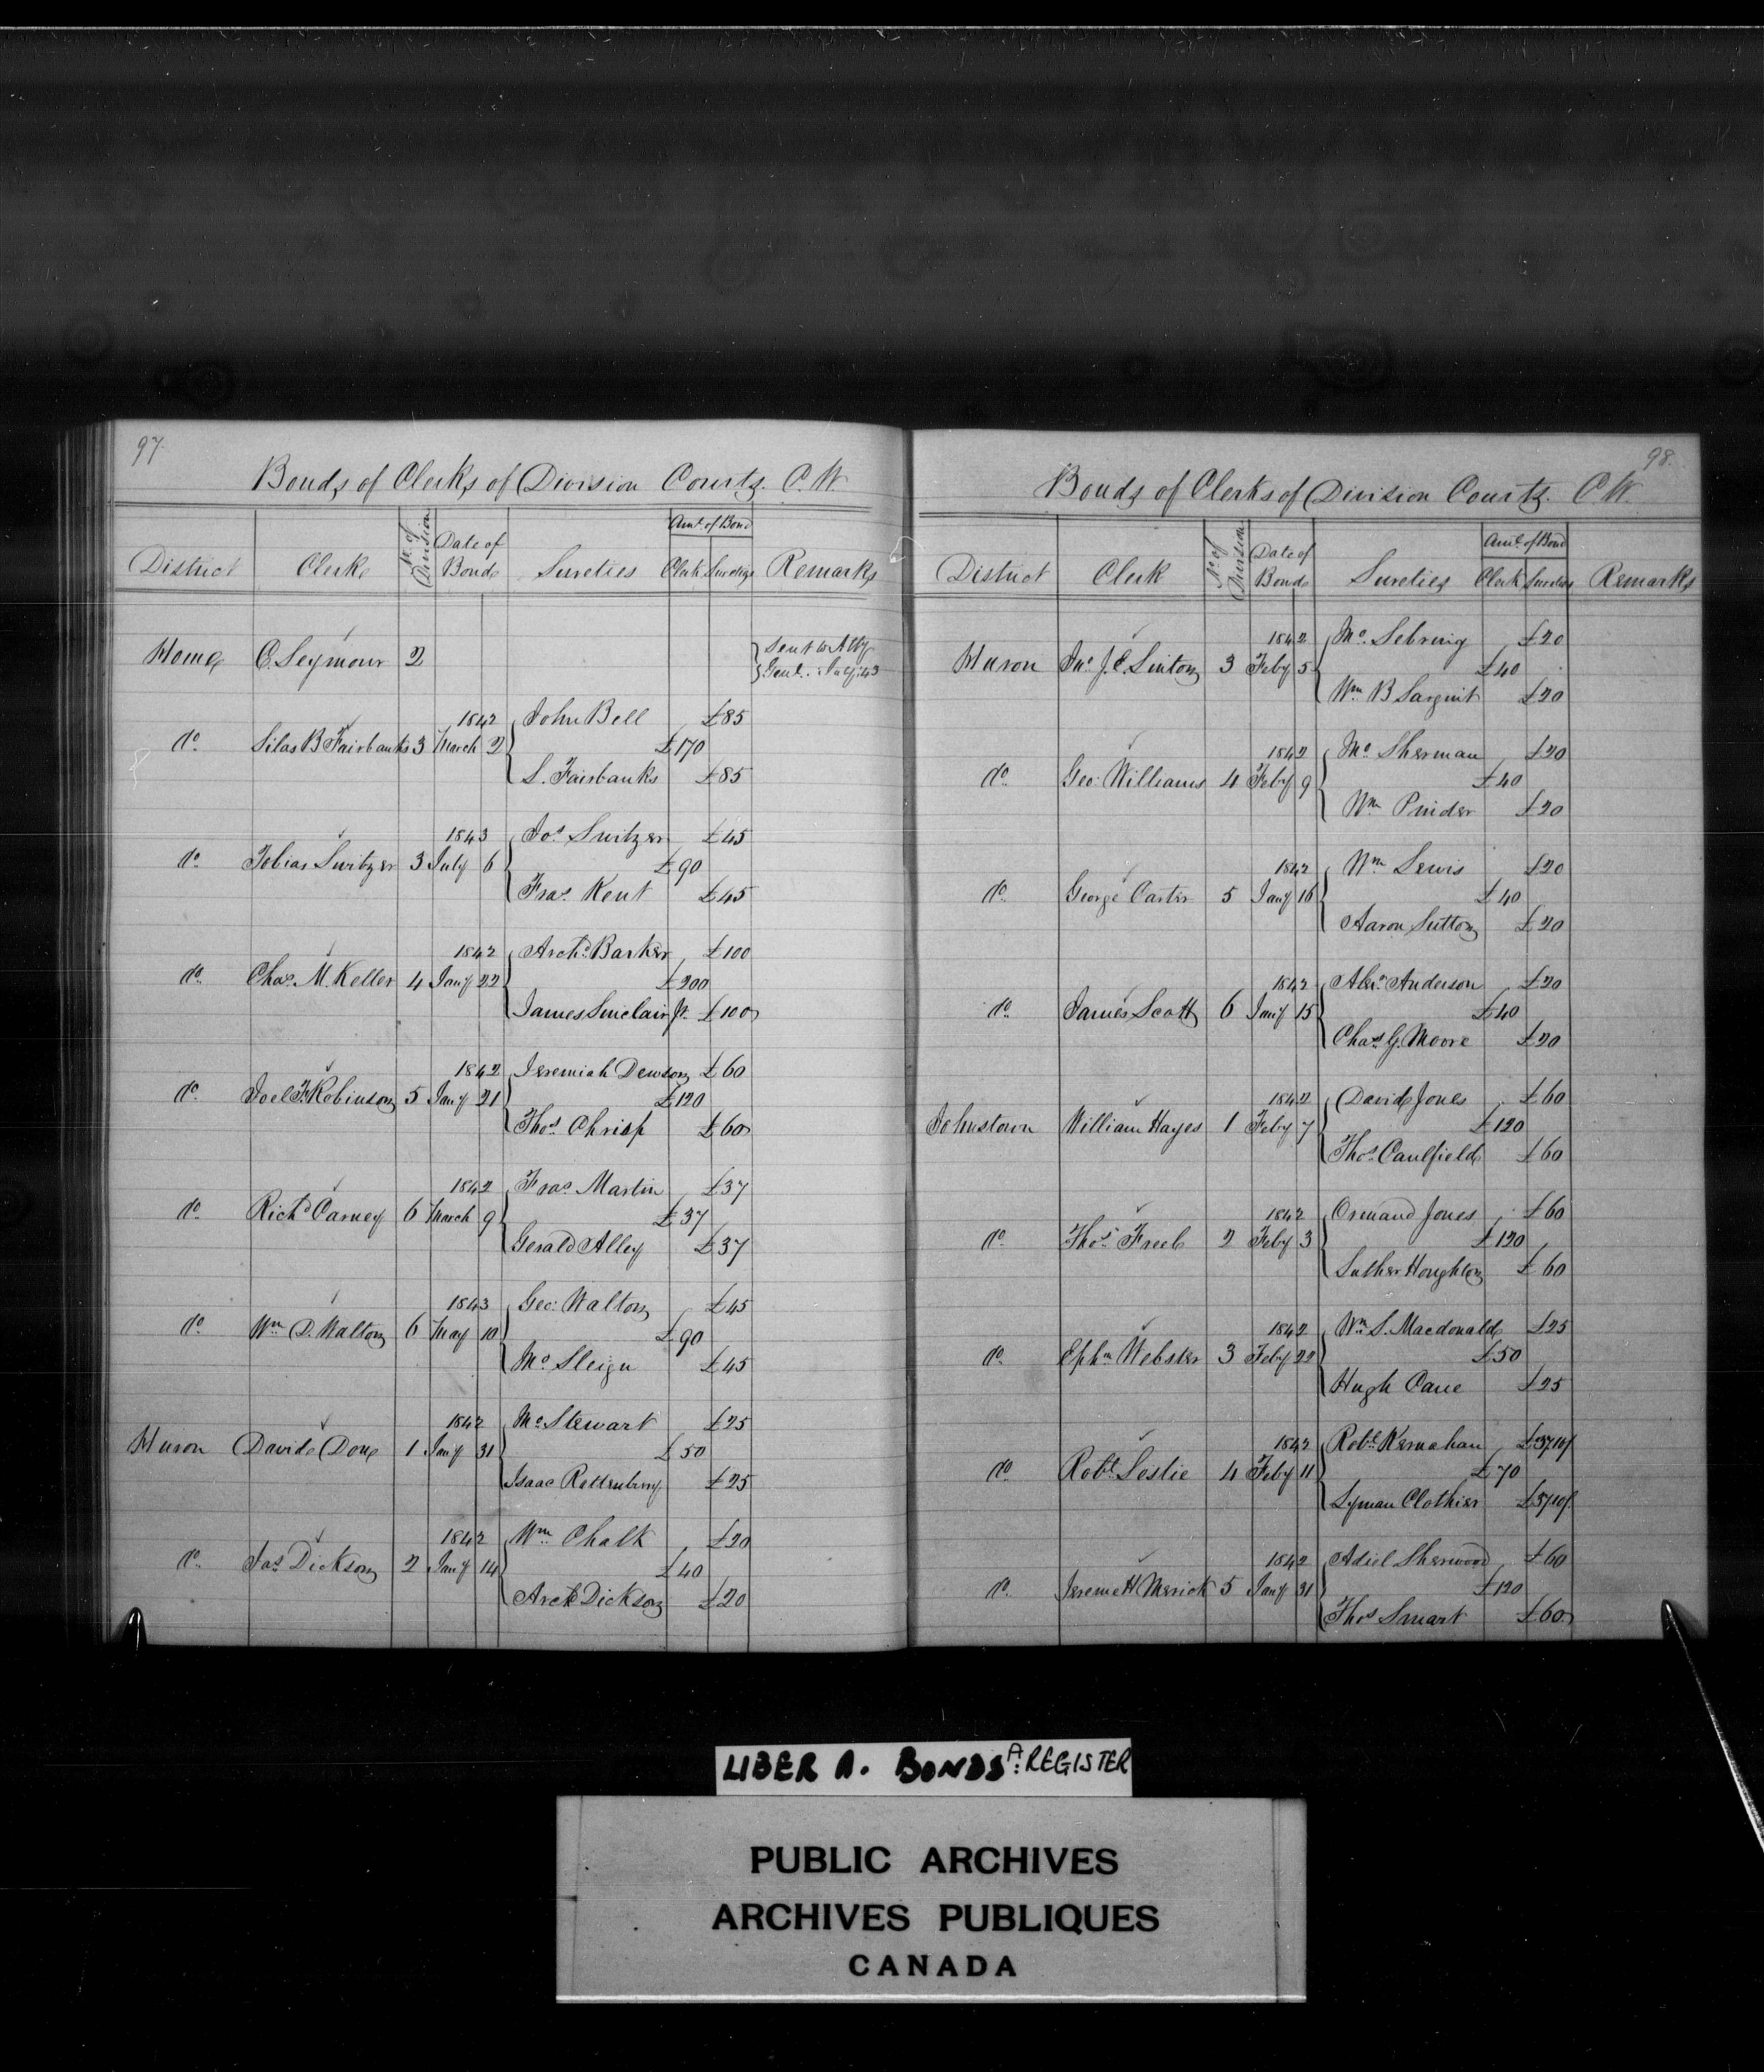 97.
Bonds of Clerks of Division Courts. C. W.
District Clerk No. of Division Date of Bond Sureties Amt. of Bond Clerk Sureties Remarks
Home C. Seymour 2 Sent to Atty
Genl.
1842 John Bell £85
do. Silas B Fairbanks 3 March 2 £170
S. Fairbanks £85
1843 Jos. Switzer £45
do. Tobias Switzer 3 July 6 £90
Fras. Kent £45
1842 Archd. Barker £100
do. Chas. M. Keller 4 Jany 22 £200
James Sinclair Jr. £100
1842 Jeremiah Dewson £60
do. Joel F. Robinson 5 Jany 21 £120
Thos. Chrisp £60
1842 Fras. Martin £37
do. Richd. Carney 6 March 9 £37
Gerald Alley £37
1843 Geo. Walton £45
do. Wm. D. Walton 6 May 10 £90
Mc. Sleign £45
1842 Mc. Stewart £25
Huron David Don 1 Jany 31 £50
Isaac Rottenburg £25
1842 Wm. Chalk £20
do. Jas. Dickson 2 Jany 14 £40
Archd. Dickson £20
98.
Bonds of Clerks of Division Courts. C W.
District Clerk No. of Division Date of Bond Sureties Amt. of Bond Clerk Sureties Remarks
1842 Mc. Sebring £20
Huron Jno. J. E. Linton 3 Feby 5 £40
Wm. B Sargint £20
1842 Mc. Sherman £20
do. Geo. Williams 4 Feby 9 £40
Wm. Pinder £20
1842 Wm. Lewis £20
do. George Carter 5 Jany 16 £40
Aaron Sutton £20
1842 Alexr. Anderson £20
do. James Scott 6 Jany 15 £40
Chas. G. Moore £20
1842 David Jones £60
Johnstown William Hayes 1 Feby 7 £120
Thos. Caulfield £60
1842 Ormand Jones £60
do. Thos. Freel 2 Feby 3 £120
Luther Houghton £60
1842 Wm. S. Macdonald £25
do. Ephm. Webster 3 Feby 22 £50
Hugh Cane £25
1842 Robt. Kernahan £37.10/
do. Robt. Leslie 4 Feby 11 £70
Lyman Clothier £37.10/
1842 Adiel Sherwood £60
do. Jereme H Merick 5 Jany 31 £120
Thos. Smart £60
LIBER A. BONDS A: REGISTER
PUBLIC ARCHIVES
ARCHIVES PUBLIQUES
CANADA